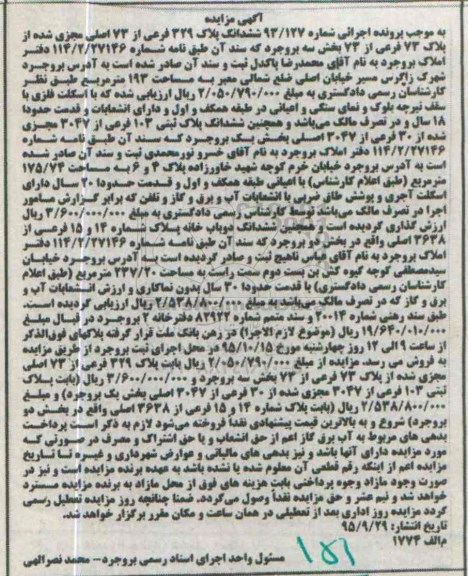 آگهی مزایده
به موجب پرونده اجرائی شماره ۹۳/۱۲۷ ششدانگ پلاک ۳۲۹ فرعی از ۷۳ اصلی مجزی شده از
پلاک ۷۳ فرعی از ۷۳ بخش سه بروجرد که سند آن طبق نامه شماره ۱۱۴/۲/۲۷۱۴۶ دفتر
املاک بروجرد به نام آقای محمدرضا پاکدل ثبت و سند آن صادر شده است به آدرس بروجرد
شهرک زاگرس مسیر خیابان اصلی ضلع شمالی معبر به مساحت ۱۹۳ مترمربع طبق نظر
کارشناسان رسمی دادگستری به مبلغ ۲/۰۵۰/۷۹۰/۰۰۰ ریال ارزیابی شده که با اسکلت فلزی با
سقف تیرچه بلوک و نمای سنگی و اعیانی در طبقه همکف و اول و دارای انشعابات و قدمت حدودا
۱۸ سال و در تصرف مالک می‌باشد و همچنین ششدانگ پلاک ثبتی ۱۰۳ فرعی از ۳۰۴۷ مجزی
شده از ۳۰ فرعی از ۳۰۴۷ اصلی بخش یک بروجرد که سند آن طبق نامه شماره
۱۱۴/۲/۲۷۱۴۶ دفتر املاک بروجرد به نام آقای خسرو نورمحمدی ثبت و سند آن صادر شده
است به آدرس بروجرد خیابان خرم کوچه شهید خاورزاده پلاک ۴ و ۶ به مساحت ۱۷۵/۷۴
مترمربع (طبق اعلام کارشناس) با اعیانی طبقه همکف و اول و قدمت حدودا ۲۰ سال دارای
اسکلت آجری و پوشش طاق ضربی با انشعابات آب و برق و گاز و تلفن که برابر گزارش مامور
اجرا در تصرف مالک می‌باشد توسط کارشناس رسمی دادگستری به مبلغ ۳/۶۰۰/۰۰۰/۰۰۰ ریال
ارزش گذاری گردیده است و همچنین ششدانگ دوباب خانه پلاک شماره ۱۴ و ۱۵ فرعی از
۳۶۳۸ اصلی واقع در بخش دو بروجرد که سند آن طبق نامه شماره ۱۱۴/۲/۲۷۱۴۶ دفتر
املاک بروجرد به نام آقای عباس ناهیج ثبت و صادر گردیده است به آدرس بروجرد خیابان
سیدمصطفی کوچه گیوه کش بن بست دوم سمت راست به مساحت ۲۳۷/۲۰ مترمربع (طبق اعلام
کارشناسان رسمی دادگستری) با قدمت حدودا ۳۰ سال بدون نماکاری و ارزش انشعابات آب و
برق و گاز که در تصرف مالک می‌باشد به مبلغ ۲/۵۳۸/۸۰۰/۰۰۰ ریال ارزیابی گردیده است.
طبق سند رهنی شماره ۲۰۰۱۴ و سند متمم شماره ۸۲۹۲۲ دفترخانه ۲ بروجرد در قبال مبلغ
۱۹/۶۴۰/۰۱۰/۰۰۰ ریال (موضوع لازم الاجرا) در رهن بانک ملت قرار گرفته پلاکهای فوق‌الذکر
از ساعت ۹ الی ۱۲ روز چهارشنبه مورخ ۹۵/۱۰/۱۵ در محل اجرای ثبت بروجرد از طریق مزایده
به فروش می رسد. مزایده از مبلغ ۲/۰۵۰/۷۹۰/۰۰۰ ریال بابت پلاک ۳۲۹ فرعی از ۷۳ اصلی
مجزی شده از پلاک ۷۳ فرعی از ۷۳ بخش سه بروجرد و ۳/۶۰۰/۰۰۰/۰۰۰ ریال (بابت پلاک
ثبتی ۱۰۳ فرعی از ۳۰۴۷ مجزی شده از ۳۰ فرعی از ۳۰۴۷ اصلی بخش یک بروجرد) و مبلغ
۲/۵۳۸/۸۰۰/۰۰۰ ریال (بابت پلاک شماره ۱۴ و ۱۵ فرعی از ۳۶۳۸ اصلی واقع در بخش دو
بروجرد) شروع و به بالاترین قیمت پیشنهادی نقدا فروخته می‌شود لازم به ذکر است پرداخت
بدهی های مربوط به آب برق گاز اعم از حق انشعاب و یا حق اشتراک و مصرف در صورتی که
مورد مزایده دارای آنها باشد و نیز بدهی های مالیاتی و عوارض شهرداری و غیره تا تاریخ
مزایده اعم از اینکه رقم قطعی آن معلوم شده یا نشده باشد به عهده برنده مزایده است و نیز در
صورت وجود مازاد وجوه پرداختی بابت هزینه های فوق از محل مازاد به برنده مزایده مسترد
خواهد شد و نیم عشر و حق مزایده نقداً وصول می‌گردد. ضمنا چنانچه روز مزایده تعطیل رسمی
گردد مزایده روز اداری بعد از تعطیلی در همان ساعت و مکان مقرر برگزار خواهد شد.
تاریخ انتشار: ۹۵/۹/۲۹
م‌الف ۱۷۷۴
مسئول واحد اجرای اسناد رسمی بروجرد - محمد نصرالهی